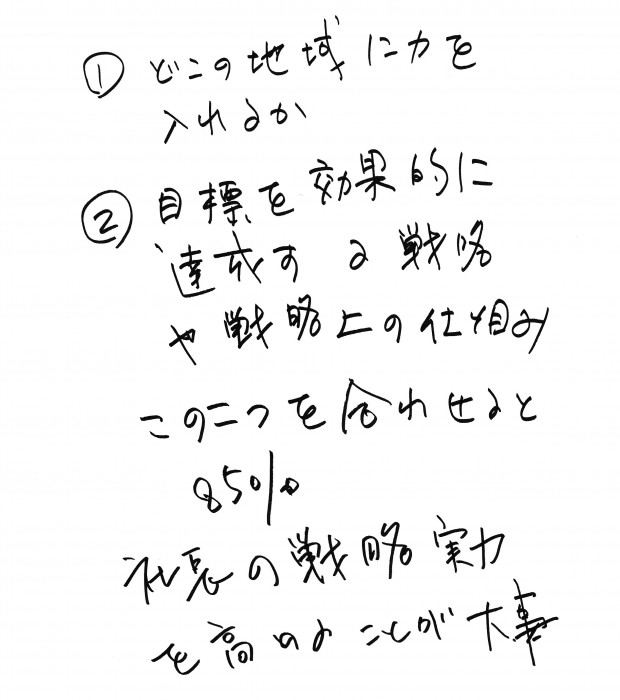 ① どこの地域に力を
入れるか
② 目標を効果的に
達成する戦略
や戦略上の仕組み
この二つを合わせると
85%
社長の戦略実力
を高めることが大事